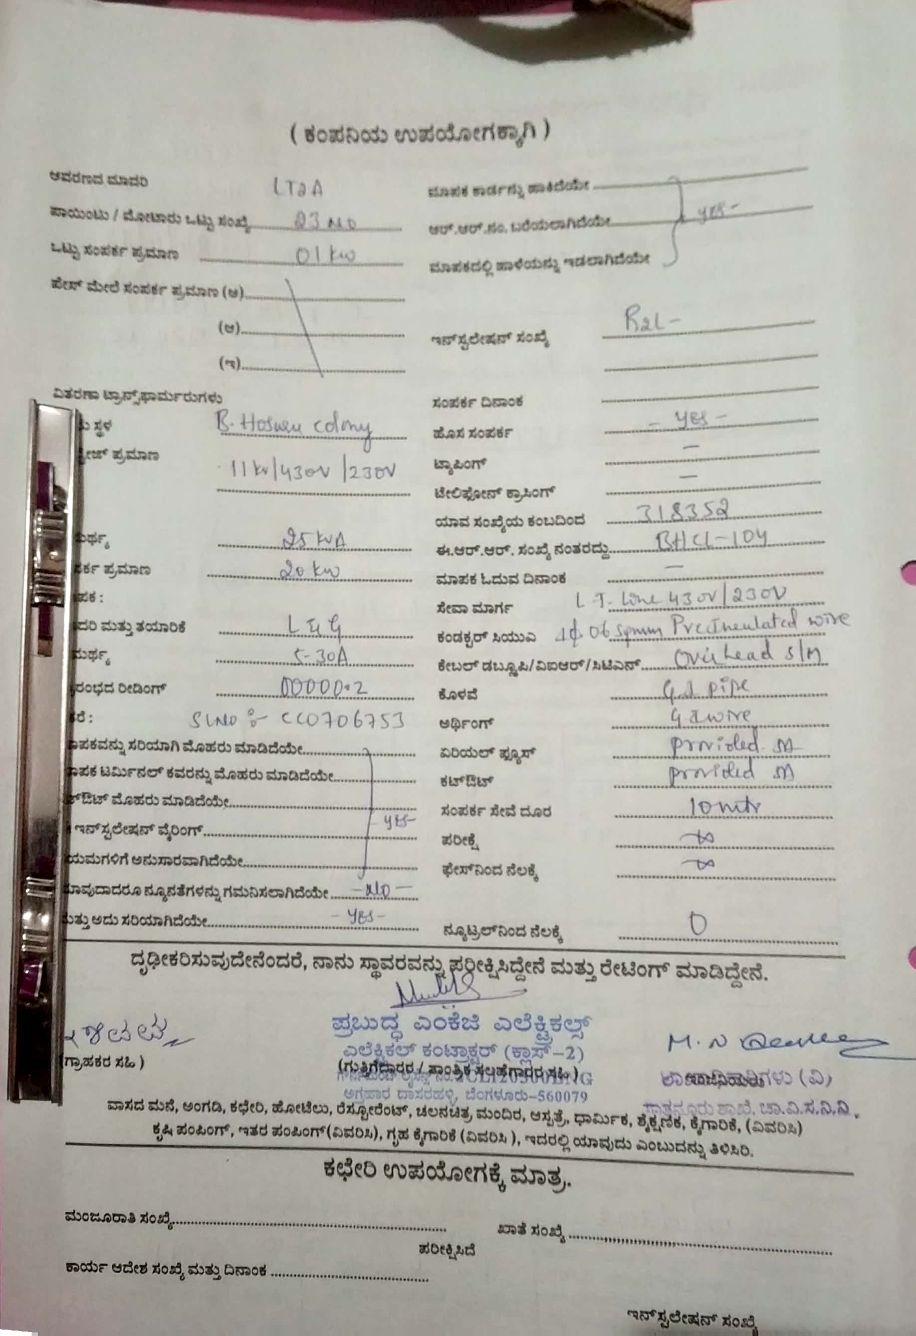 ( ಕಂಪನಿಯ ಉಪಯೋಗಕ್ಕಾಗಿ )
ಆವರಣದ ಮಾದರಿ LT2A
ಪಾಯಿಂಟು / ಮೋಟಾರು ಒಟ್ಟು ಸಂಖ್ಯೆ 03 NO
ಒಟ್ಟು ಸಂಪರ್ಕ ಪ್ರಮಾಣ 01 kw
ಫೇಸ್ ಮೇಲೆ ಸಂಪರ್ಕ ಪ್ರಮಾಣ (ಅ)
(ಆ)
(ಇ)
ವಿತರಣಾ ಟ್ರಾನ್ಸ್‌ಫಾರ್ಮರುಗಳು
ಸ್ಥಳ B. Hosuru colony
ಪ್ರಮಾಣ 11 kv/430v /230v
25 kVA
ಪ್ರಮಾಣ 20 kw
L & G
5-30A
ರೀಡಿಂಗ್ 000000.2
SLNO :- CC0706753
ಸರಿಯಾಗಿ ಮೊಹರು ಮಾಡಿದೆಯೇ
ಟರ್ಮಿನಲ್ ಕವರನ್ನು ಮೊಹರು ಮಾಡಿದೆಯೇ
ಮೊಹರು ಮಾಡಿದೆಯೇ
- yes-
ಇನ್‌ಸ್ಟಲೇಷನ್ ವೈರಿಂಗ್
ಅನುಸಾರವಾಗಿದೆಯೇ
ನ್ಯೂನತೆಗಳನ್ನು ಗಮನಿಸಲಾಗಿದೆಯೇ - NO -
ಅದು ಸರಿಯಾಗಿದೆಯೇ - yes -
ಮಾಪಕ ಕಾರ್ಡನ್ನು ಹಾಕಿದೆಯೇ
ಆರ್.ಆರ್.ನಂ. ಬರೆಯಲಾಗಿದೆಯೇ yes -
ಮಾಪಕದಲ್ಲಿ ಹಾಳೆಯನ್ನು ಇಡಲಾಗಿದೆಯೇ
ಇನ್‌ಸ್ಟಲೇಷನ್ ಸಂಖ್ಯೆ
ಸಂಪರ್ಕ ದಿನಾಂಕ
ಹೊಸ ಸಂಪರ್ಕ - yes -
ಟ್ಯಾಪಿಂಗ್ -
ಟೆಲಿಫೋನ್ ಕ್ರಾಸಿಂಗ್ -
ಯಾವ ಸಂಖ್ಯೆಯ ಕಂಬದಿಂದ 318352
ಈ.ಆರ್.ಆರ್. ಸಂಖ್ಯೆ ನಂತರದ್ದು BHCL-104
ಮಾಪಕ ಓದುವ ದಿನಾಂಕ -
ಸೇವಾ ಮಾರ್ಗ L.T. Line 430V/230V
ಕಂಡಕ್ಟರ್ ಸಿಯುಎ 1ф 06 sqmm Preinsulated wire
ಕೇಬಲ್ ಡಬ್ಲೂಪಿ/ವಿಐಆರ್/ಸಿಟಿಎಸ್ Over head S/M
ಕೊಳವೆ G.I pipe
ಅರ್ಥಿಂಗ್ G I wire
ಏರಿಯಲ್ ಫ್ಯೂಸ್ provided
ಕಟ್‌ಔಟ್ provided
ಸಂಪರ್ಕ ಸೇವೆ ದೂರ 10 mtr
ಪರೀಕ್ಷೆ ∞
ಫೇಸ್‌ನಿಂದ ನೆಲಕ್ಕೆ ∞
ನ್ಯೂಟ್ರಲ್‌ನಿಂದ ನೆಲಕ್ಕೆ 0
ದೃಢೀಕರಿಸುವುದೇನೆಂದರೆ, ನಾನು ಸ್ಥಾವರವನ್ನು ಪರೀಕ್ಷಿಸಿದ್ದೇನೆ ಮತ್ತು ರೇಟಿಂಗ್ ಮಾಡಿದ್ದೇನೆ.
ಪ್ರಬುದ್ಧ ಎಂಕೆಜಿ ಎಲೆಕ್ಟ್ರಿಕಲ್ಸ್
ಎಲೆಕ್ಟ್ರಿಕಲ್ ಕಂಟ್ರಾಕ್ಟರ್ (ಕ್ಲಾಸ್-2)
(ಗ್ರಾಹಕರ ಸಹಿ )
(ಗುತ್ತಿಗೆದಾರರ / ತಾಂತ್ರಿಕ ಸಲಹೆಗಾರರ ಸಹಿ )
ಅಗ್ರಹಾರ ದಾಸರಹಳ್ಳಿ, ಬೆಂಗಳೂರು-560079
ವಾಸದ ಮನೆ, ಅಂಗಡಿ, ಕಛೇರಿ, ಹೋಟೆಲು, ರೆಸ್ಟೋರೆಂಟ್, ಚಲನಚಿತ್ರ ಮಂದಿರ, ಆಸ್ಪತ್ರೆ, ಧಾರ್ಮಿಕ, ಶೈಕ್ಷಣಿಕ, ಕೈಗಾರಿಕೆ, (ವಿವರಿಸಿ)
ಕೃಷಿ ಪಂಪಿಂಗ್, ಇತರ ಪಂಪಿಂಗ್(ವಿವರಿಸಿ), ಗೃಹ ಕೈಗಾರಿಕೆ (ವಿವರಿಸಿ ), ಇದರಲ್ಲಿ ಯಾವುದು ಎಂಬುದನ್ನು ತಿಳಿಸಿರಿ.
ಕಛೇರಿ ಉಪಯೋಗಕ್ಕೆ ಮಾತ್ರ.
ಮಂಜೂರಾತಿ ಸಂಖ್ಯೆ
ಖಾತೆ ಸಂಖ್ಯೆ
ಪರೀಕ್ಷಿಸಿದೆ
ಕಾರ್ಯ ಆದೇಶ ಸಂಖ್ಯೆ ಮತ್ತು ದಿನಾಂಕ
ಇನ್‌ಸ್ಟಲೇಷನ್ ಸಂಖ್ಯೆ